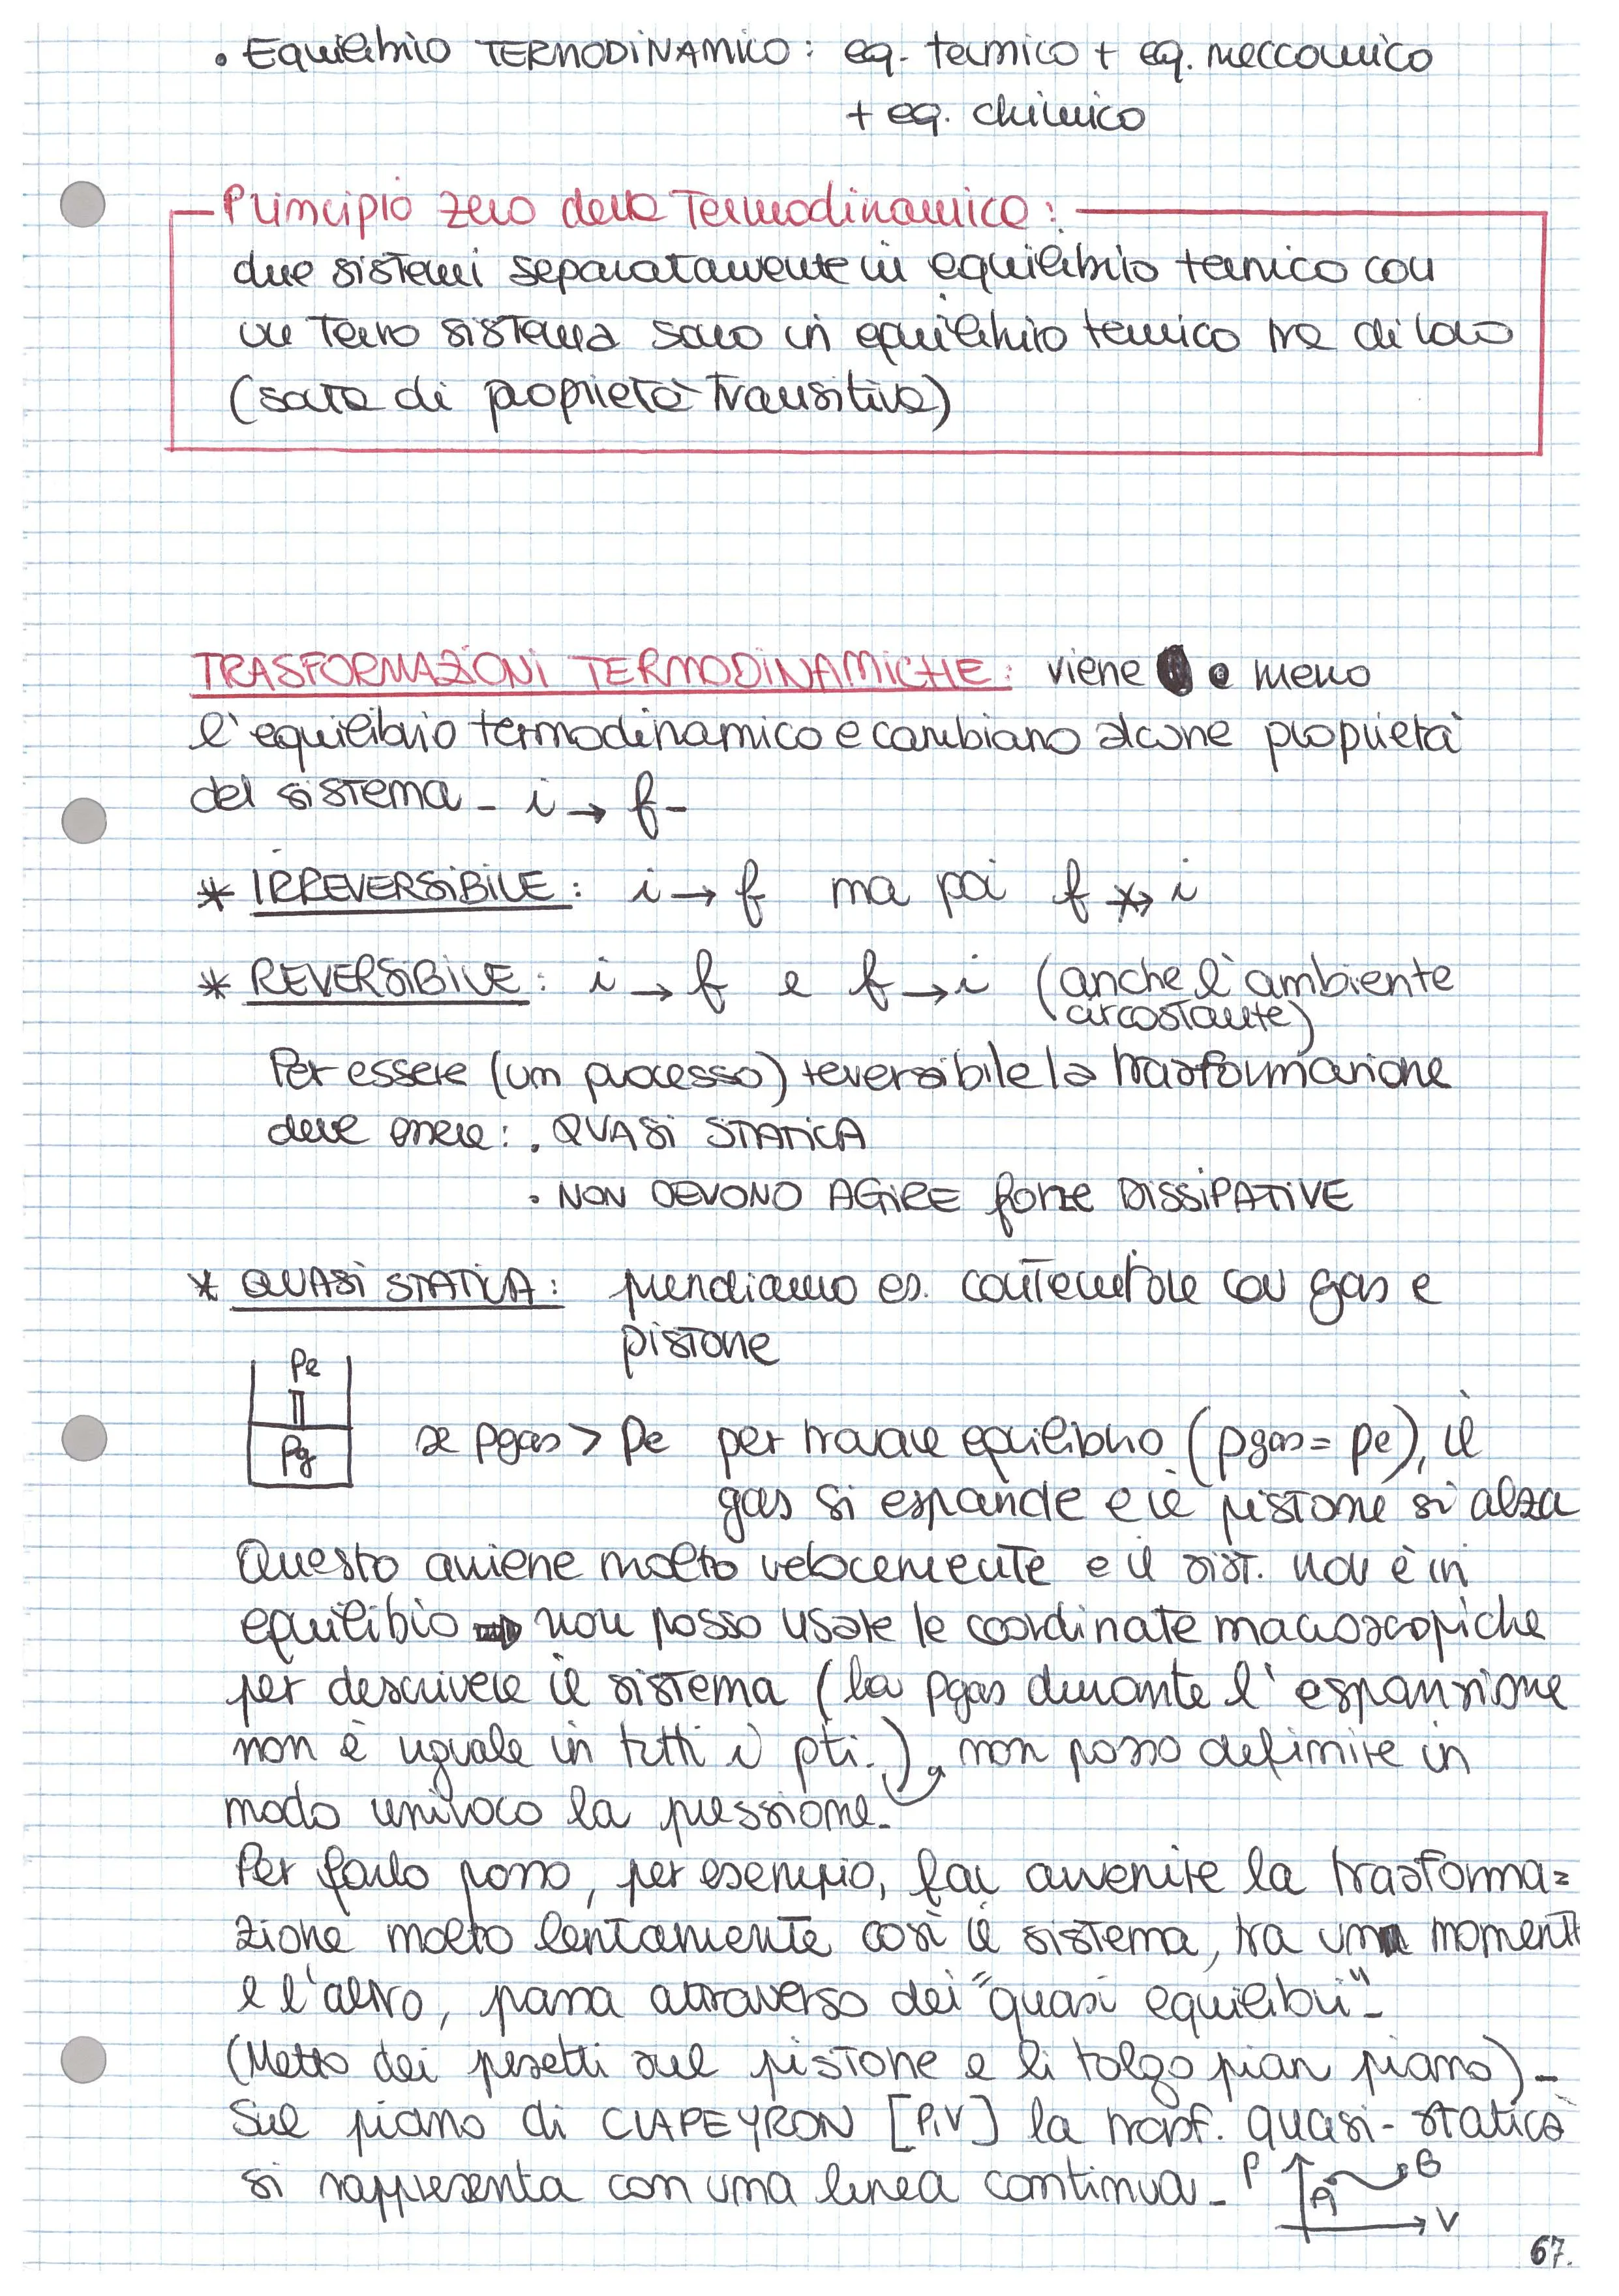 • Equilibrio TERMODINAMICO: eq. termico + eq. meccanico
+ eq. chimico
Principio zero della Termodinamica:
due sistemi separatamente in equilibrio termico con
un terzo sistema sono in equilibrio termico tra di loro
(sorta di proprietà transitiva)
TRASFORMAZIONI TERMODINAMICHE: viene a meno
l'equilibrio termodinamico e cambiano alcune proprietà
del sistema - i → f -
* IRREVERSIBILE: i → f ma poi f ↛ i
* REVERSIBILE: i → f e f → i (anche l'ambiente
circostante)
Per essere (un processo) reversibile la trasformazione
deve essere: • QUASI STATICA
• NON DEVONO AGIRE forze DISSIPATIVE
* QUASI STATICA: prendiamo es. contenitore con gas e
pistone
Pe
Pg
se pgas > pe per trovare equilibrio (pgas = pe), il
gas si espande e il pistone si alza
Questo avviene molto velocemente e il sist. non è in
equilibio ⇒ non posso usare le coordinate macroscopiche
per descrivere il sistema (la pgas durante l'espansione
non è uguale in tutti i pti.), non posso definire in
modo univoco la pressione.
Per farlo posso, per esempio, far avvenire la trasforma=
zione molto lentamente così il sistema, tra un momento
e l'altro, passa attraverso dei "quasi equilibri" -
(Metto dei pesetti sul pistone e li tolgo pian piano) -
Sul piano di CLAPEYRON [P,V] la trasf. quasi-statica
si rappresenta con una linea continua -
P
A
B
V
67.